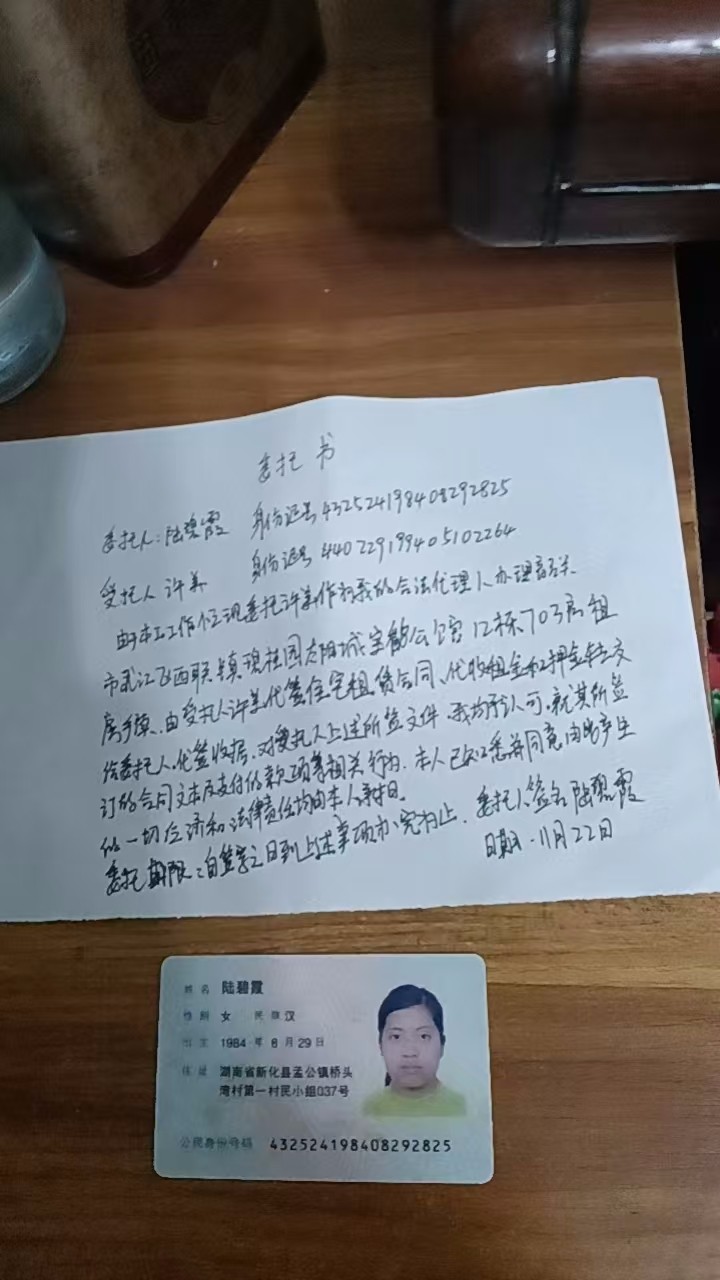 委托书
委托人：陆碧霞 身份证号 432524198408292825
受托人 许美 身份证号 440229199405102264
由于本人工作 现委托许美作为我的合法代理人办理韶关
市武江区西联镇碧桂园太阳城 公馆12栋703房租
房手续.由受托人许美代签住宅租赁合同、代收租金和押金转交
给委托人.代签收据.对受托人上述所签文件.我均予认可.就其所签
订的合同文本及支付的款项等相关行为.本人已知悉并同意.由此产生
的一切经济和法律责任均由本人承担.
委托期限：自签字之日到上述事项办完为止.委托人签名 陆碧霞
日期.11月22日
姓名 陆碧霞
性别 女 民族 汉
出生 1984 年 8 月 29 日
住址 湖南省新化县孟公镇桥头
湾村第一村民小组037号
公民身份号码 432524198408292825